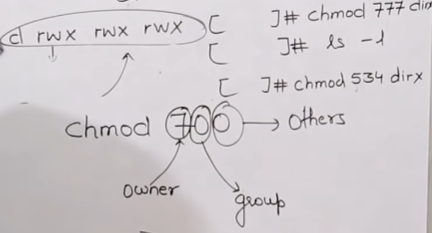 d rwx rwx rwx [ ]# chmod 777 dirx
[ ]# ls -l
[ ]# chmod 534 dirx
chmod 700 → Others
owner
group